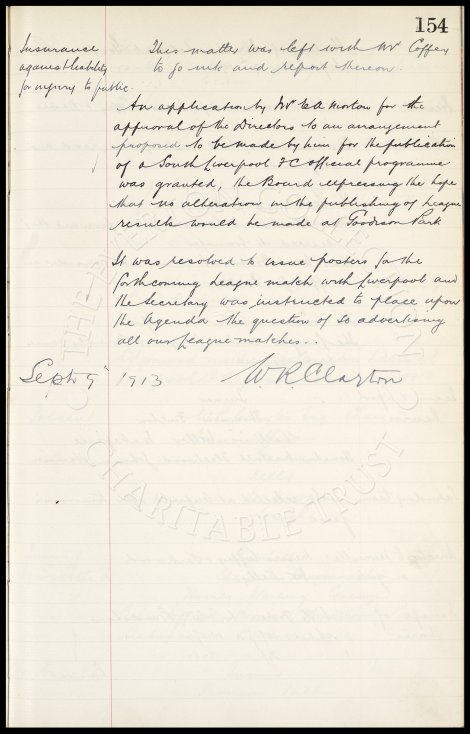 154
Insurance
against liability
for injury to public.
This matter was left with Mr Coffey
to go into and report thereon.
An application by Mr EA Morton for the
approval of the Directors to an arrangement
proposed to be made by him for the publication
of a South Liverpool FC official programme
was granted, the Board expressing the hope
that no alteration in the publishing of League
results would be made at Goodison Park
It was resolved to issue posters for the
forthcoming League match with Liverpool and
the Secretary was instructed to place upon
the Agenda the question of so advertising
all our League matches..
Sept 9th 1913
W. R. Clayton
CHARITABLE TRUST